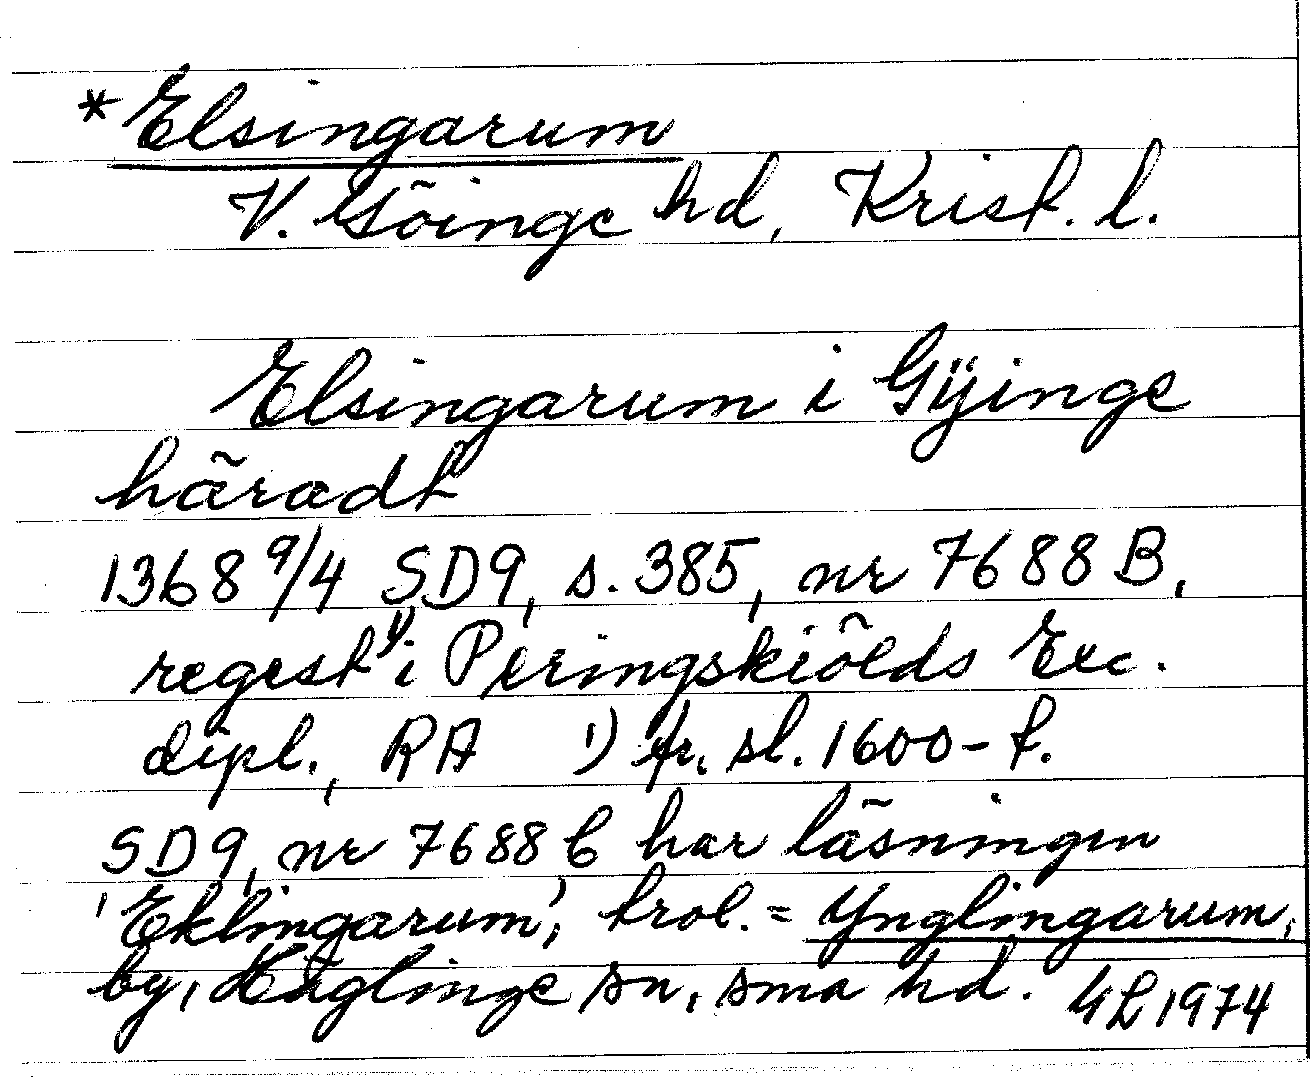 *Elsingarum
V. Göinge hd, Krist. l.
Elsingarum i Gÿinge
häradt
1368 9/4 SD9, s. 385, nr 7688 B,
regest 1) i Peringskiölds Exc.
dipl., RA 1) fr. sl. 1600-t.
SD9, nr 7688 b har läsningen
'Eklingarum', trol. = Ynglingarum,
by, Häglinge sn, sma hd. GL 1974